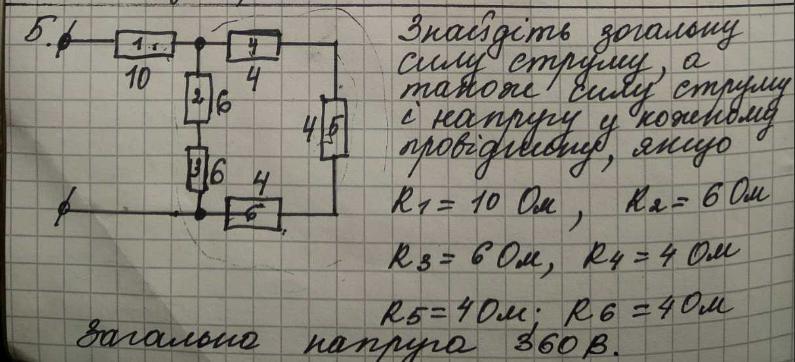 5.
1
10
4
4
2
6
3
6
4
5
4
6
Знайдіть загальну
силу струму, а
також силу струму
і напругу у кожному
провіднику, якщо
R1 = 10 Ом, R2 = 6 Ом
R3 = 6 Ом, R4 = 4 Ом
R5 = 4 Ом; R6 = 4 Ом
Загальна напруга 360 В.